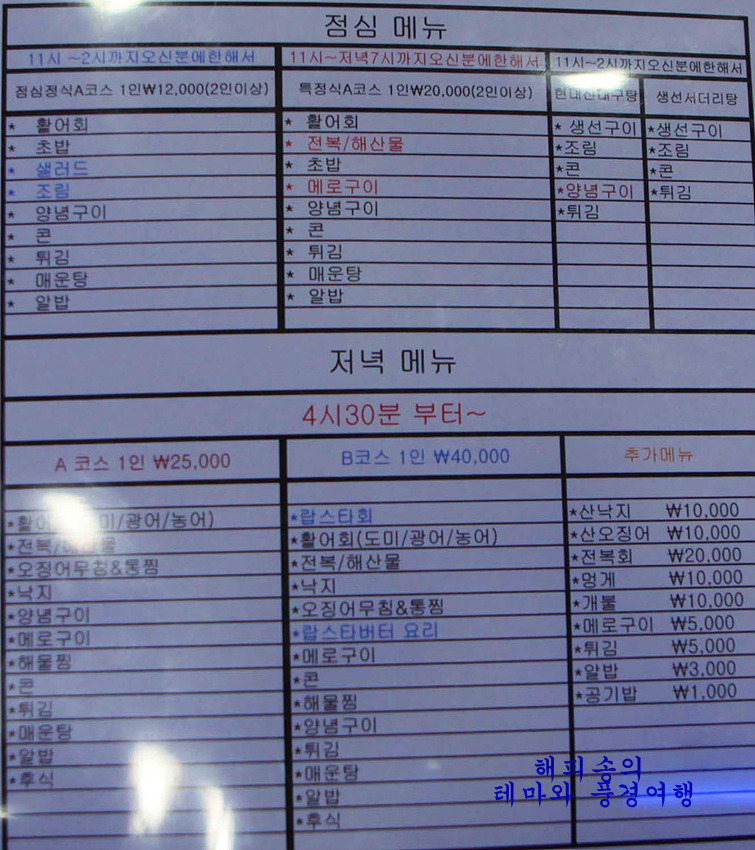 점심 메뉴
11시 ~2시까지오신분에한해서
11시~저녁7시까지오신분에한해서
11시~2시까지오신분에한해서
점심정식A코스 1인₩12,000(2인이상)
특정식A코스 1인₩20,000(2인이상)
생선서더리탕
* 활어회
* 초밥
* 샐러드
* 조림
* 양념구이
* 콘
* 튀김
* 매운탕
* 알밥
* 활어회
* 전복/해산물
* 초밥
* 메로구이
* 양념구이
* 콘
* 튀김
* 매운탕
* 알밥
* 생선구이
*조림
*콘
*양념구이
*튀김
*생선구이
*조림
*콘
*튀김
저녁 메뉴
4시30분 부터~
A 코스 1인 ₩25,000
*활어 미/광어/농어)
*전복/해 물
*오징어무침&통찜
*낙지
*양념구이
*메로구이
*해물찜
*콘
*튀김
*매운탕
*알밥
*후식
B코스 1인 ₩40,000
*랍스타회
*활어회(도미/광어/농어)
*전복/해산물
*낙지
*오징어무침&통찜
*랍스타버터 요리
*메로구이
*콘
*해물찜
*양념구이
*튀김
*매운탕
*알밥
*후식
추가메뉴
*산낙지 ₩10,000
*산오징어 ₩10,000
*전복회 ₩20,000
*멍게 ₩10,000
*개불 ₩10,000
*메로구이 ₩5,000
*튀김 ₩5,000
*알밥 ₩3,000
*공기밥 ₩1,000
해피송의
테마와 풍경여행